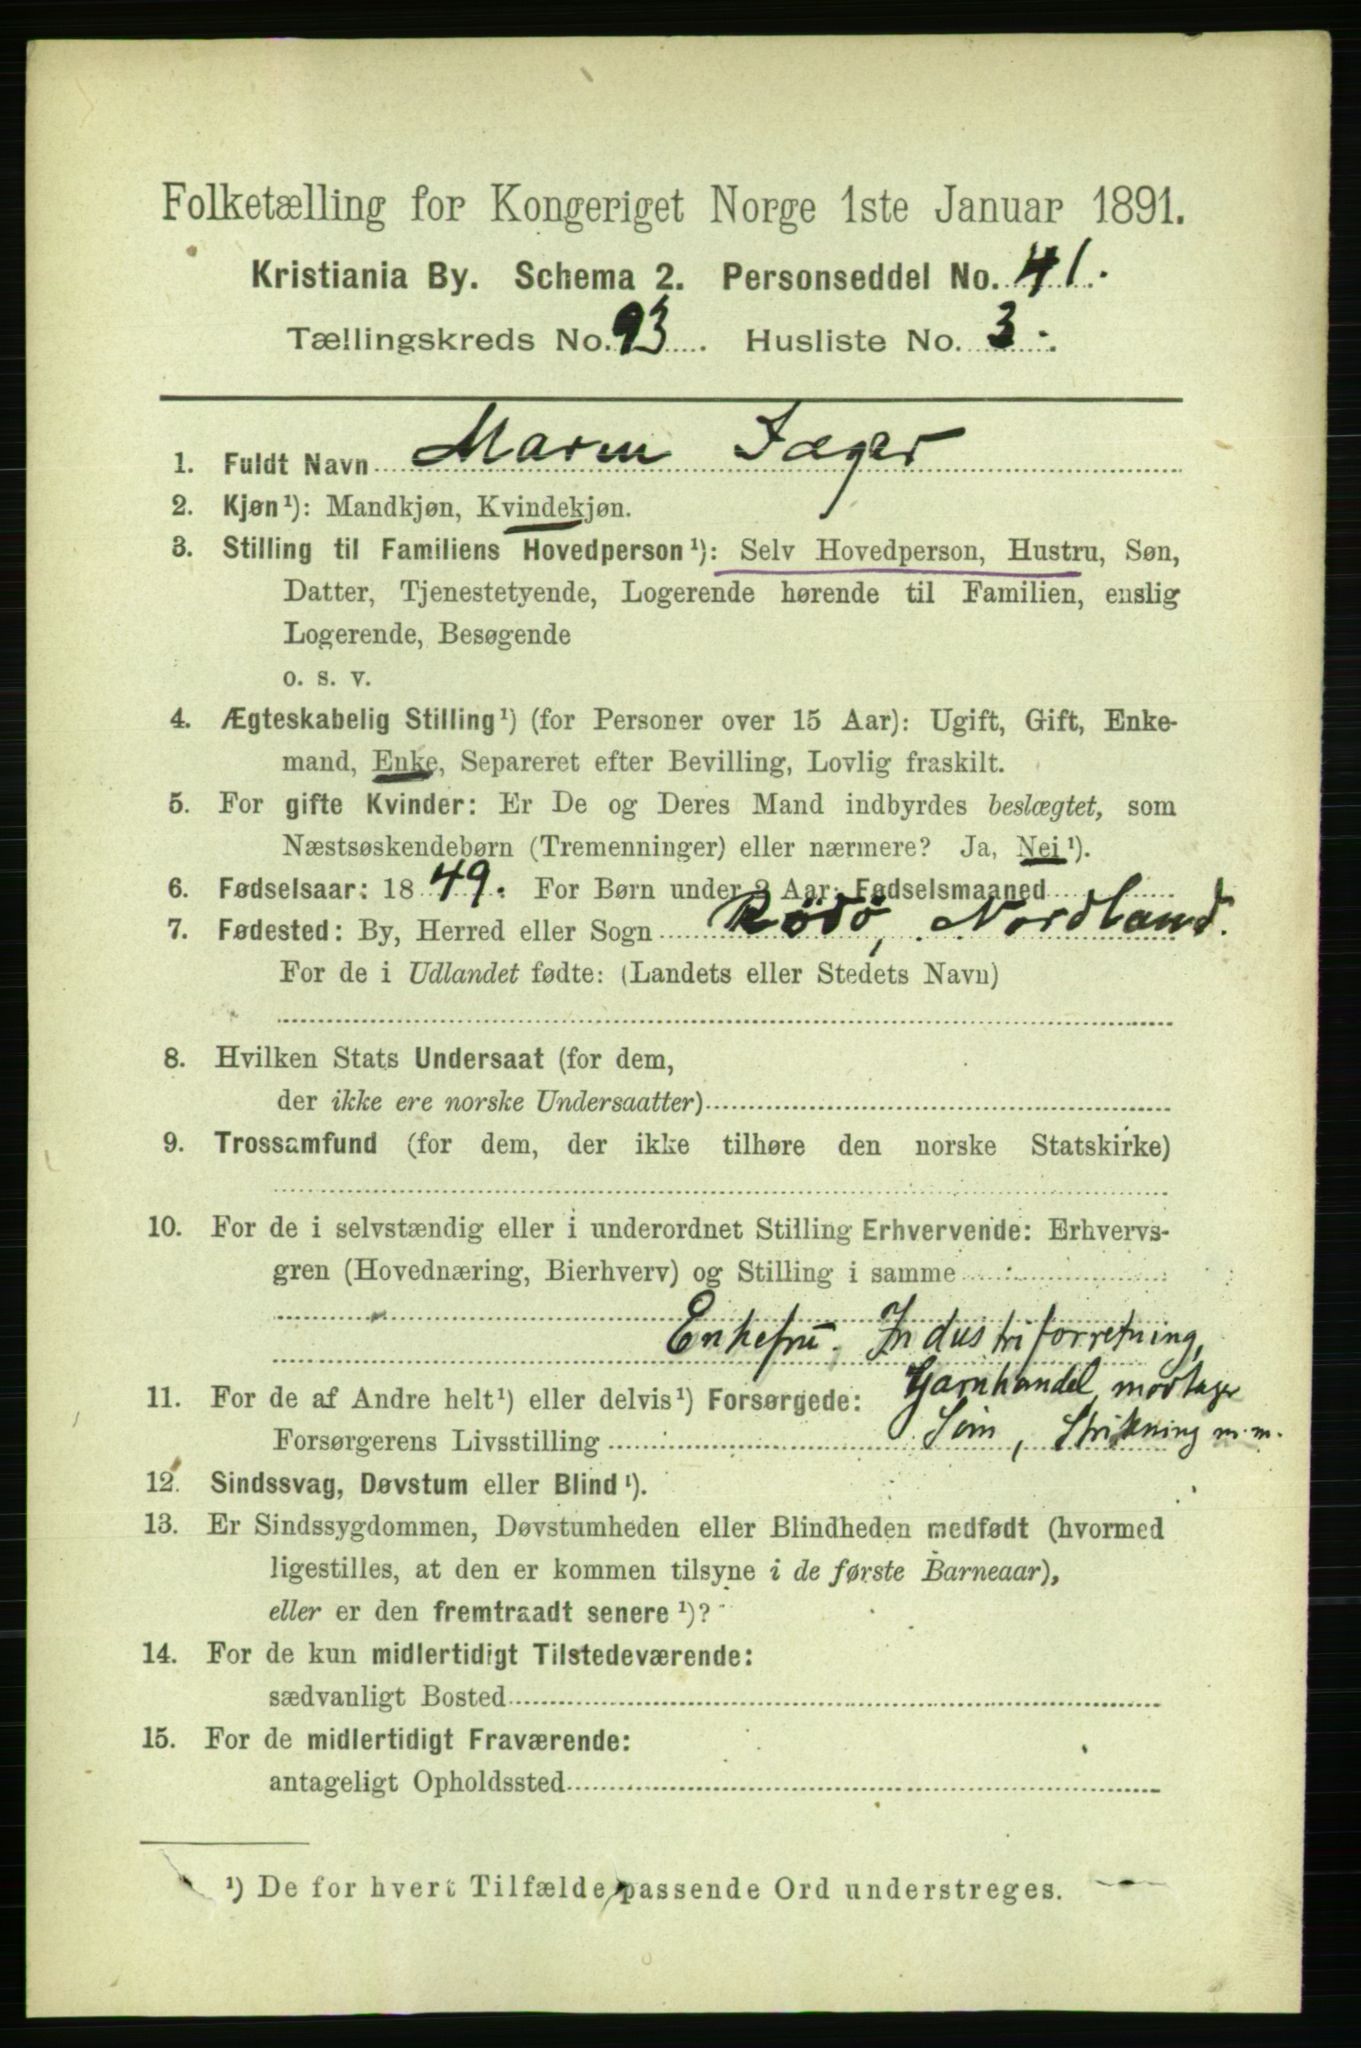 Folketælling for Kongeriget Norge 1ste Januar 1891.
Kristiania By. Schema 2. Personseddel No. 41.
Tællingskreds No. 93. Husliste No. 3.
1. Fuldt Navn Maren Jæger
2. Kjøn¹): Mandkjøn, Kvindekjøn.
3. Stilling til Familiens Hovedperson¹): Selv Hovedperson, Hustru, Søn,
Datter, Tjenestetyende, Logerende hørende til Familien, enslig
Logerende, Besøgende
o. s. v.
4. Ægteskabelig Stilling¹) (for Personer over 15 Aar): Ugift, Gift, Enke-
mand, Enke, Separeret efter Bevilling, Lovlig fraskilt.
5. For gifte Kvinder: Er De og Deres Mand indbyrdes beslægtet, som
Næstsøskendebørn (Tremenninger) eller nærmere? Ja, Nei¹).
6. Fødselsaar: 1849. For Børn under 2 Aar: Fødselsmaaned
7. Fødested: By, Herred eller Sogn Rödö, Nordland.
For de i Udlandet fødte: (Landets eller Stedets Navn)
8. Hvilken Stats Undersaat (for dem,
der ikke ere norske Undersaatter)
9. Trossamfund (for dem, der ikke tilhøre den norske Statskirke)
10. For de i selvstændig eller i underordnet Stilling Erhvervende: Erhvervs-
gren (Hovednæring, Bierhverv) og Stilling i samme
Enkefru. Industriforretning,
11. For de af Andre helt¹) eller delvis¹) Forsørgede: Garnhandel, modtager
Forsørgerens Livsstilling Søm, Strikning m.m.
12. Sindssvag, Døvstum eller Blind¹).
13. Er Sindssygdommen, Døvstumheden eller Blindheden medfødt (hvormed
ligestilles, at den er kommen tilsyne i de første Barneaar),
eller er den fremtraadt senere¹)?
14. For de kun midlertidigt Tilstedeværende:
sædvanligt Bosted
15. For de midlertidigt Fraværende:
antageligt Opholdssted
¹) De for hvert Tilfælde passende Ord understreges.